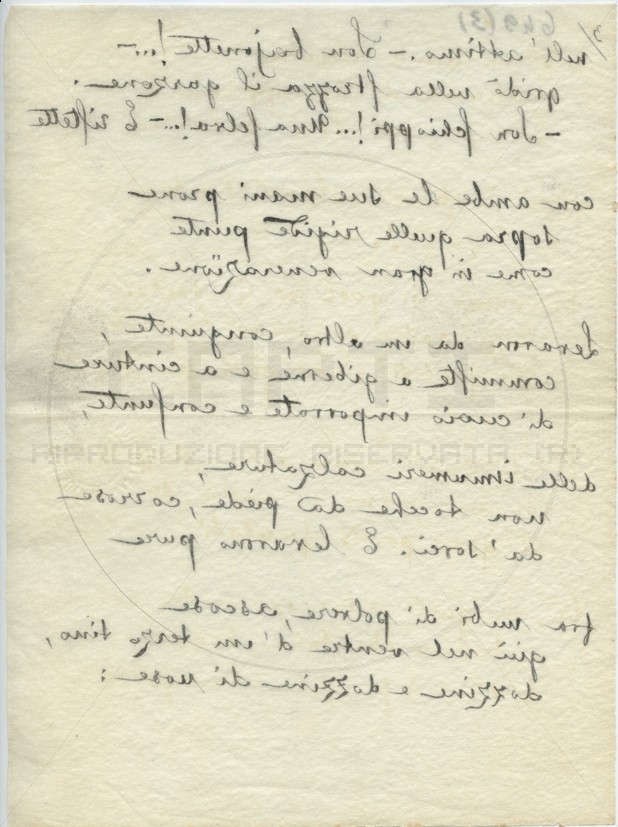 649(3)
3/
nell'attimo. – Son bajonette!... –
gridò nella strozza il garzone.
– Son schioppi!... Una selva!... – E ristette
con ambe le sue mani prone
sopra quelle rigide punte
come in gran venerazione.
Levaron da un altro, congiunte,
commiste a giberne e a cinture
di cuoio imporrate e consunte,
delle innumeri calzature,
non tocche da piede, corrose
da' sorci. E levarono pure
fra nubi di polvere, ascose
giù nel ventre d'un terzo tino,
dozzine e dozzine di uose:
RIPRODUZIONE RISERVATA (R)